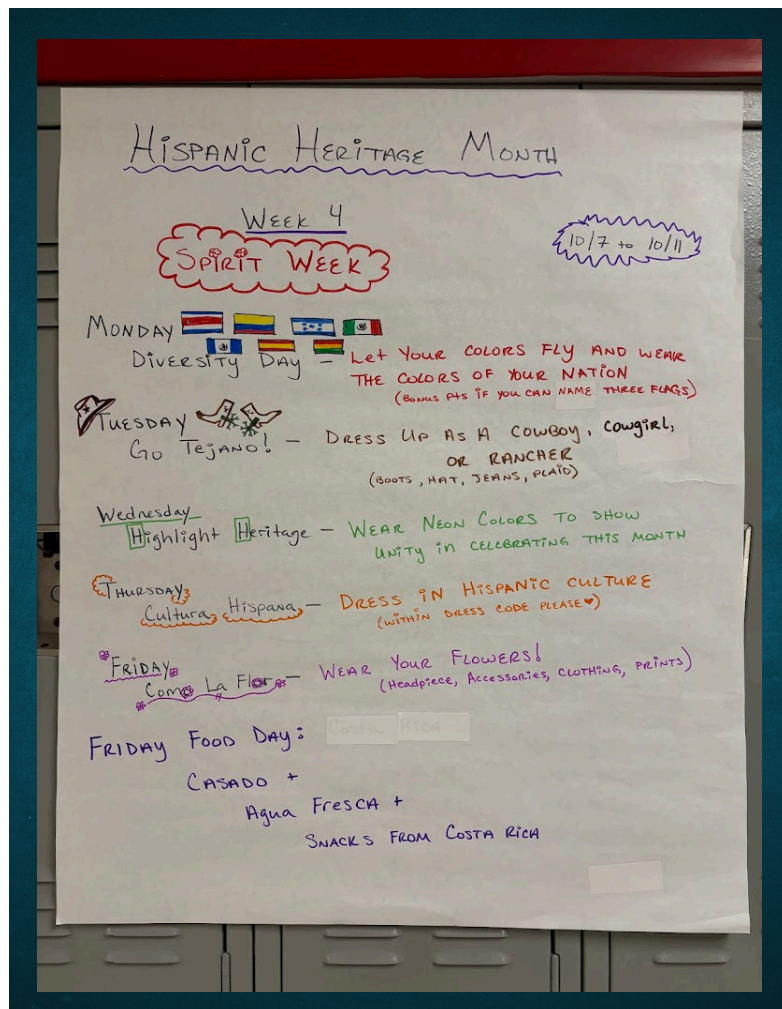 Hispanic Heritage Month
Week 4
Spirit Week
10/7 to 10/11
Monday
Diversity Day - Let Your Colors Fly and Wear
the Colors of Your Nation
(Bonus pts if you can name three flags)
Tuesday
Go Tejano! - Dress Up As A Cowboy, Cowgirl,
or Rancher
(Boots, Hat, Jeans, Plaid)
Wednesday
Highlight Heritage - Wear Neon Colors to Show
Unity in celebrating this month
Thursday
Cultura Hispana - Dress in Hispanic Culture
(within dress code please ♥)
Friday
Como La Flor - Wear Your Flowers!
(Headpiece, Accessories, Clothing, Prints)
Friday Food Day: Costa Rica
Casado +
Agua Fresca +
Snacks from Costa Rica